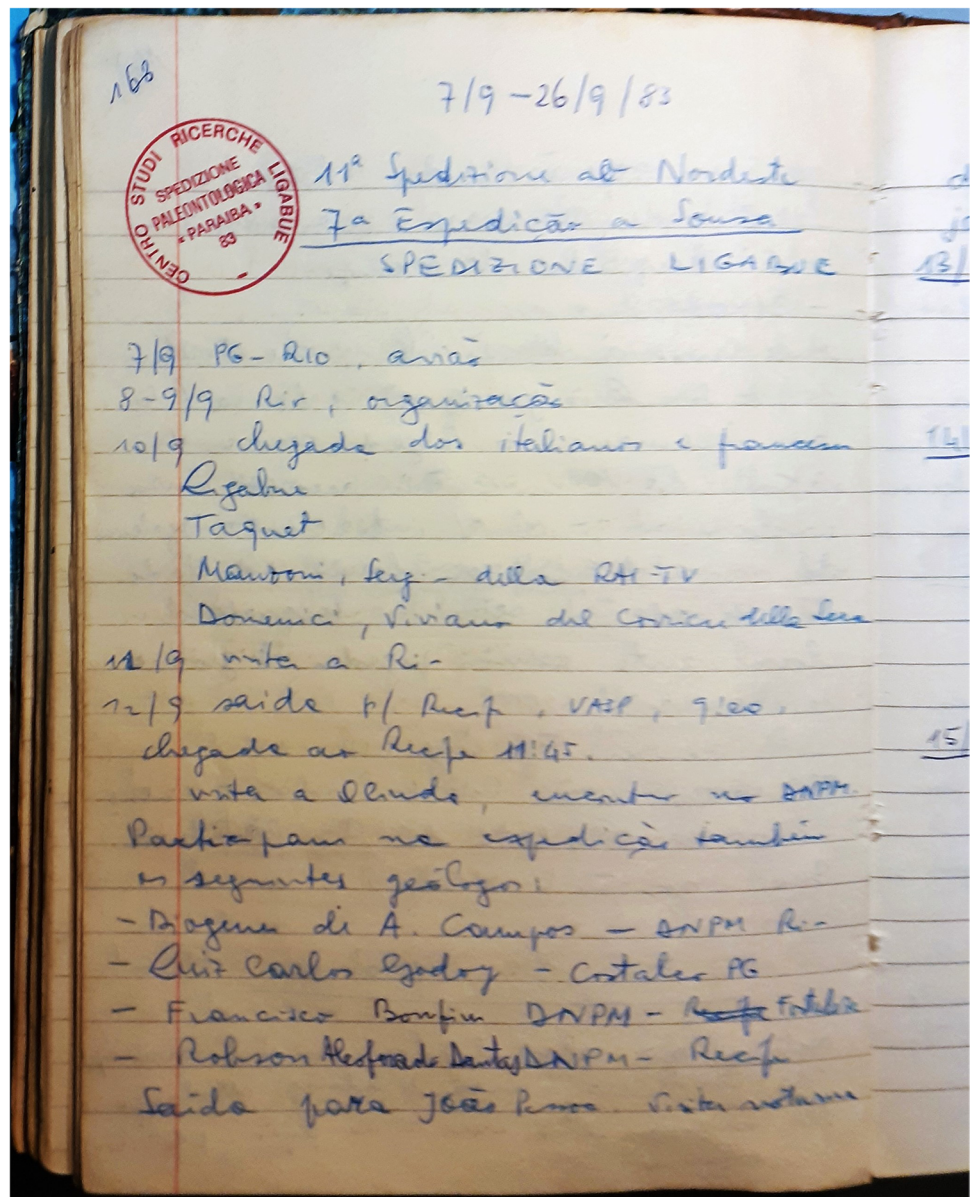 168
7/9 - 26/9/83
CENTRO STUDI RICERCHE LIGABUE
SPEDIZIONE
PALEONTOLOGICA
« PARAIBA »
83
11ª Spedizione al Nordeste
7ª Expedição a Sousa
SPEDIZIONE LIGABUE
7/9 PG - RIO, avião
8-9/9 Rio, organização
10/9 chegada dos italianos e franceses
Ligabue
Taquet
Manzoni, Serg- della RAI-TV
Domenici, Viviano del Corriere della Sera
11/9 visita a Rio
12/9 saida p/ Recife, VASP, 9:00.
chegada ao Recife 11:45.
visita a Olinda, encontro no DNPM.
Participam na expedição também
os seguintes geólogos:
- Diogenes de A. Campos - DNPM Rio
- Luiz Carlos Godoy - Costalco PG
- Francisco Bonfim DNPM - Recife Fortaleza
- Robson Alcoforado Dantas DNPM - Recife
Saida para João Pessoa. Visita noturna
13/
14/
15/